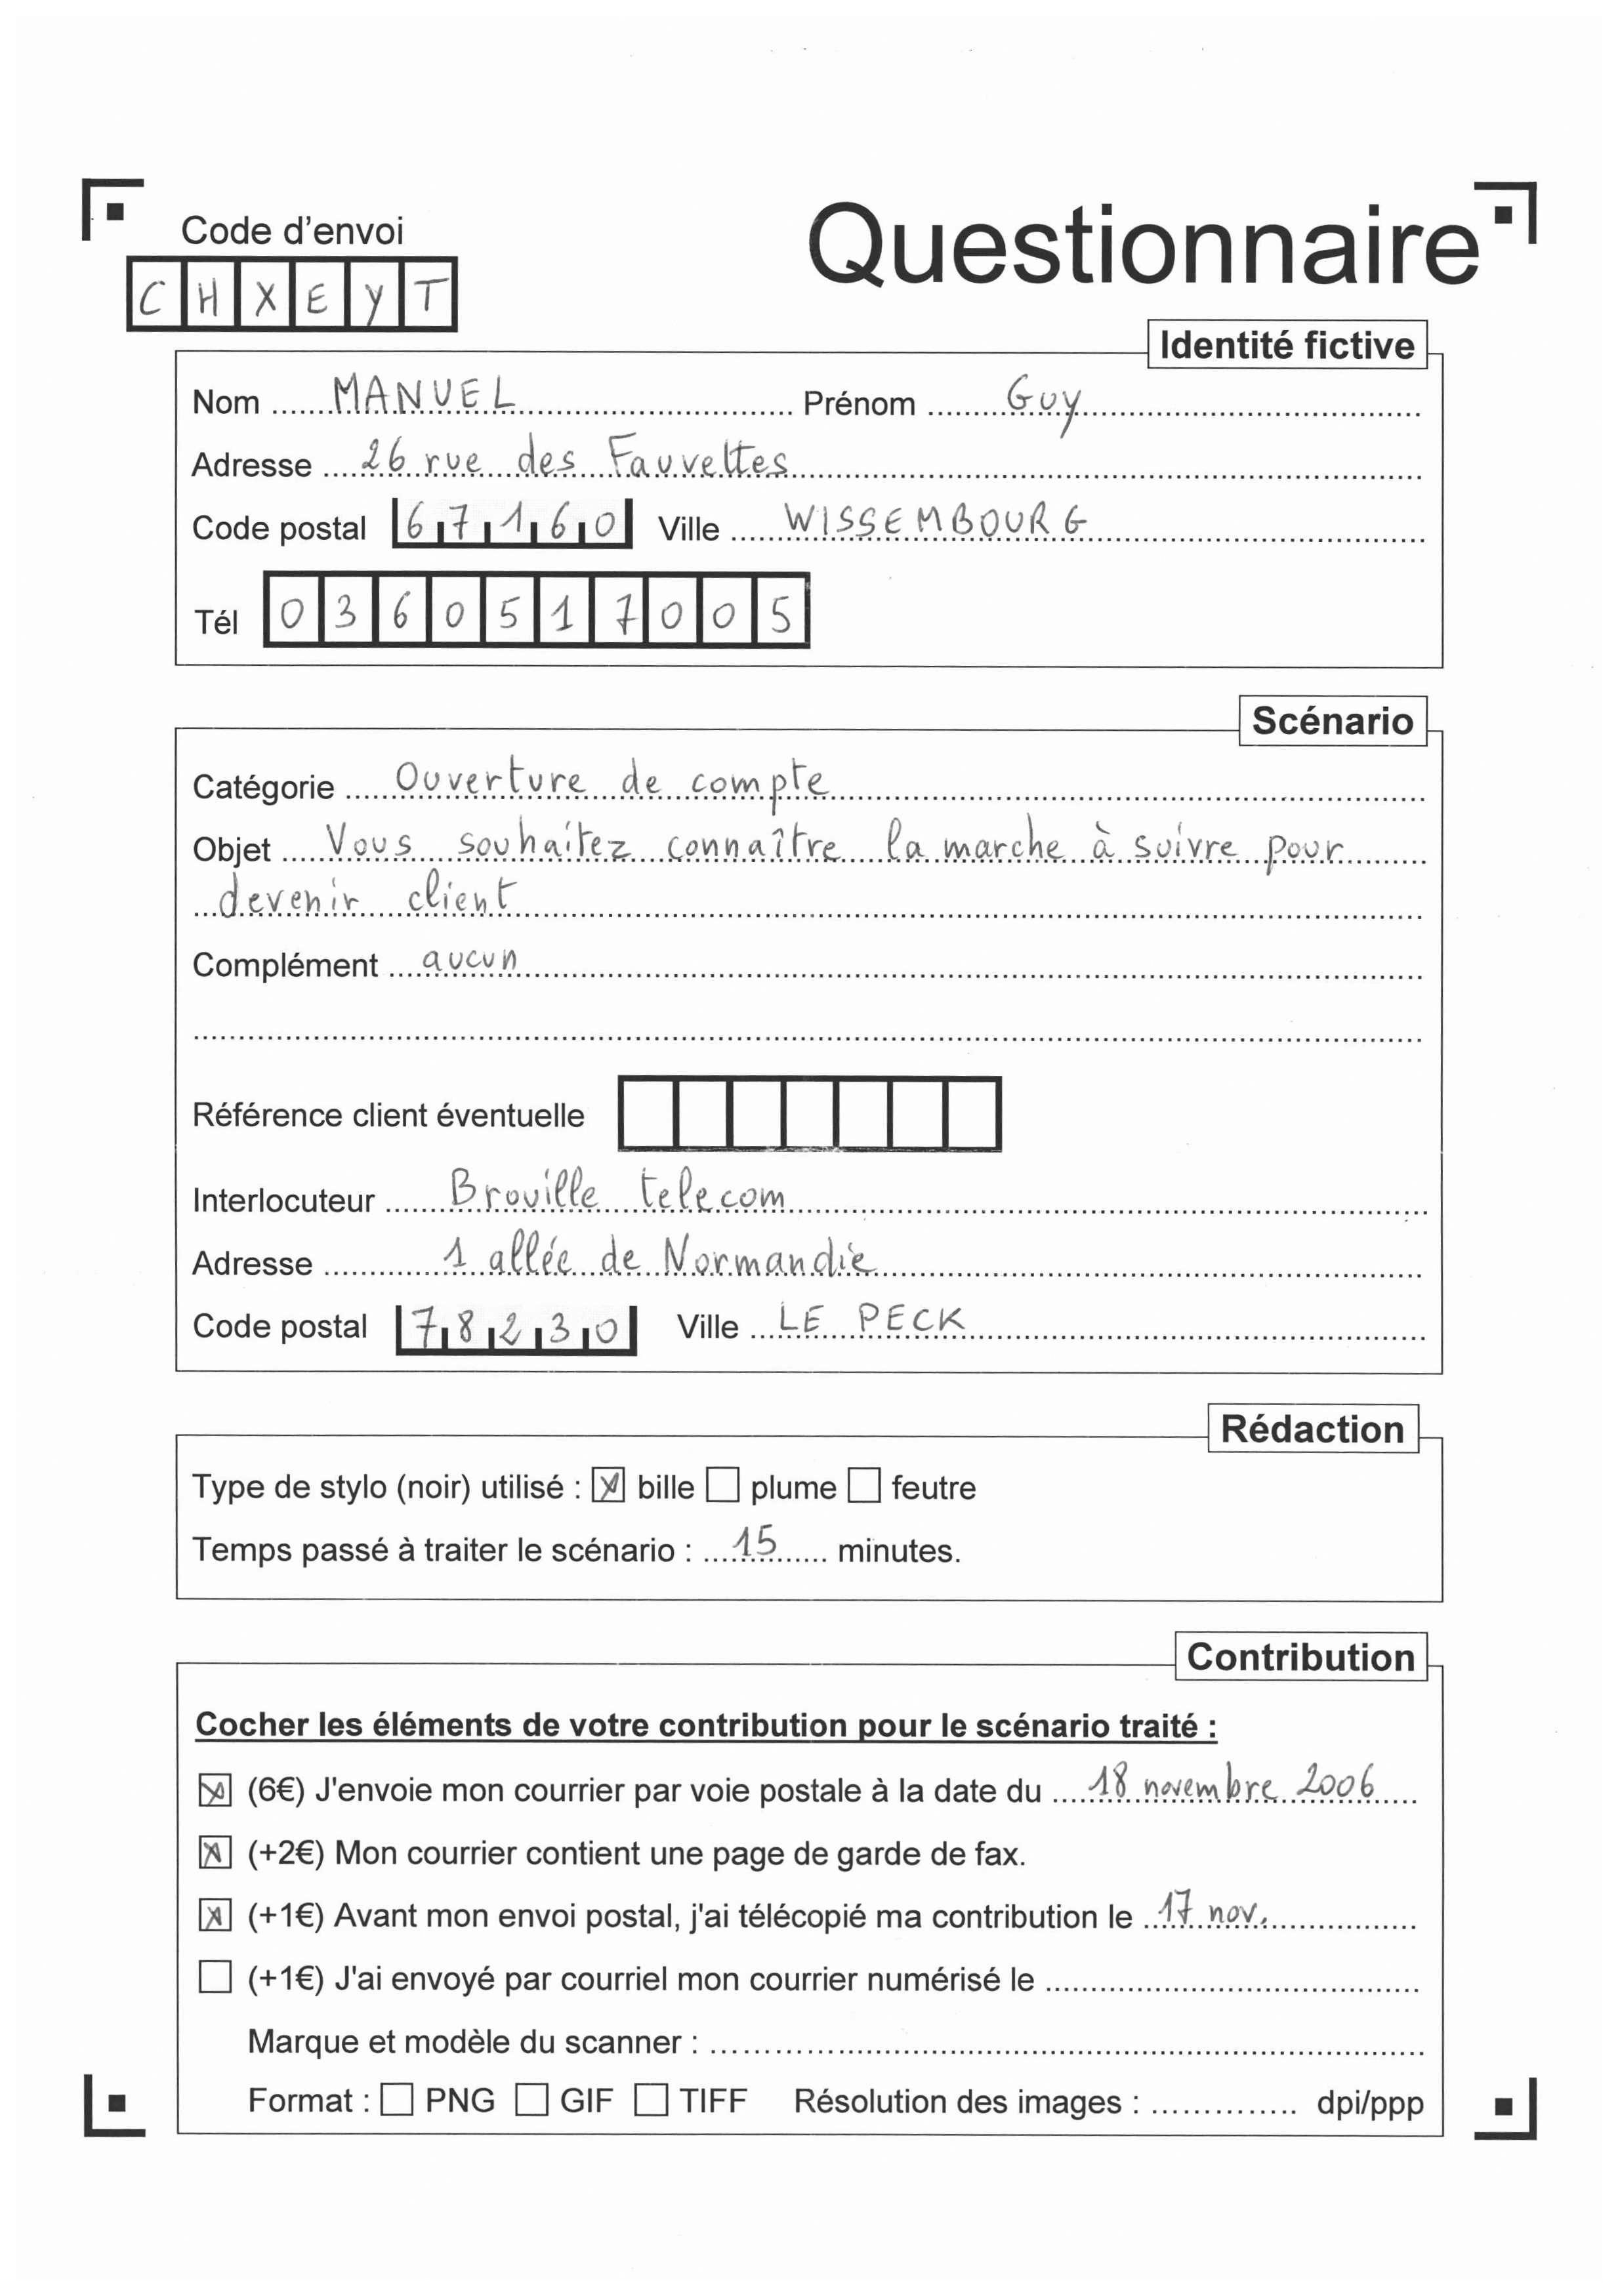 Code d'envoi
Questionnaire
CHXEYT
Identité fictive
Nom MANUEL Prénom Guy
Adresse 26 rue des Fauvettes
Code postal 67160 Ville WISSEMBOURG
Tél 0360517005
Scénario
Catégorie Ouverture de compte
Objet Vous souhaitez connaître la marche à suivre pour
devenir client
Complément aucun
Référence client éventuelle
Interlocuteur Brouille telecom
Adresse 1 allée de Normandie
Code postal 78230 Ville LE PECK
Rédaction
Type de stylo (noir) utilisé : ☒ bille ☐ plume ☐ feutre
Temps passé à traiter le scénario : 15 minutes.
Contribution
Cocher les éléments de votre contribution pour le scénario traité :
☒ (6€) J'envoie mon courrier par voie postale à la date du 18 novembre 2006
☒ (+2€) Mon courrier contient une page de garde de fax.
☒ (+1€) Avant mon envoi postal, j'ai télécopié ma contribution le 17 nov.
☐ (+1€) J'ai envoyé par courriel mon courrier numérisé le
Marque et modèle du scanner :
Format : ☐ PNG ☐ GIF ☐ TIFF Résolution des images : dpi/ppp